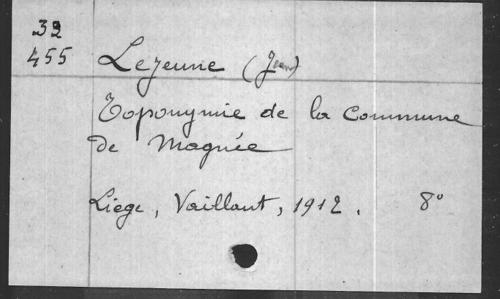 32
455
Lejeune (Jean)
Toponymie de la Commune
de Magnée
Liége, Vaillant, 1912. 8°